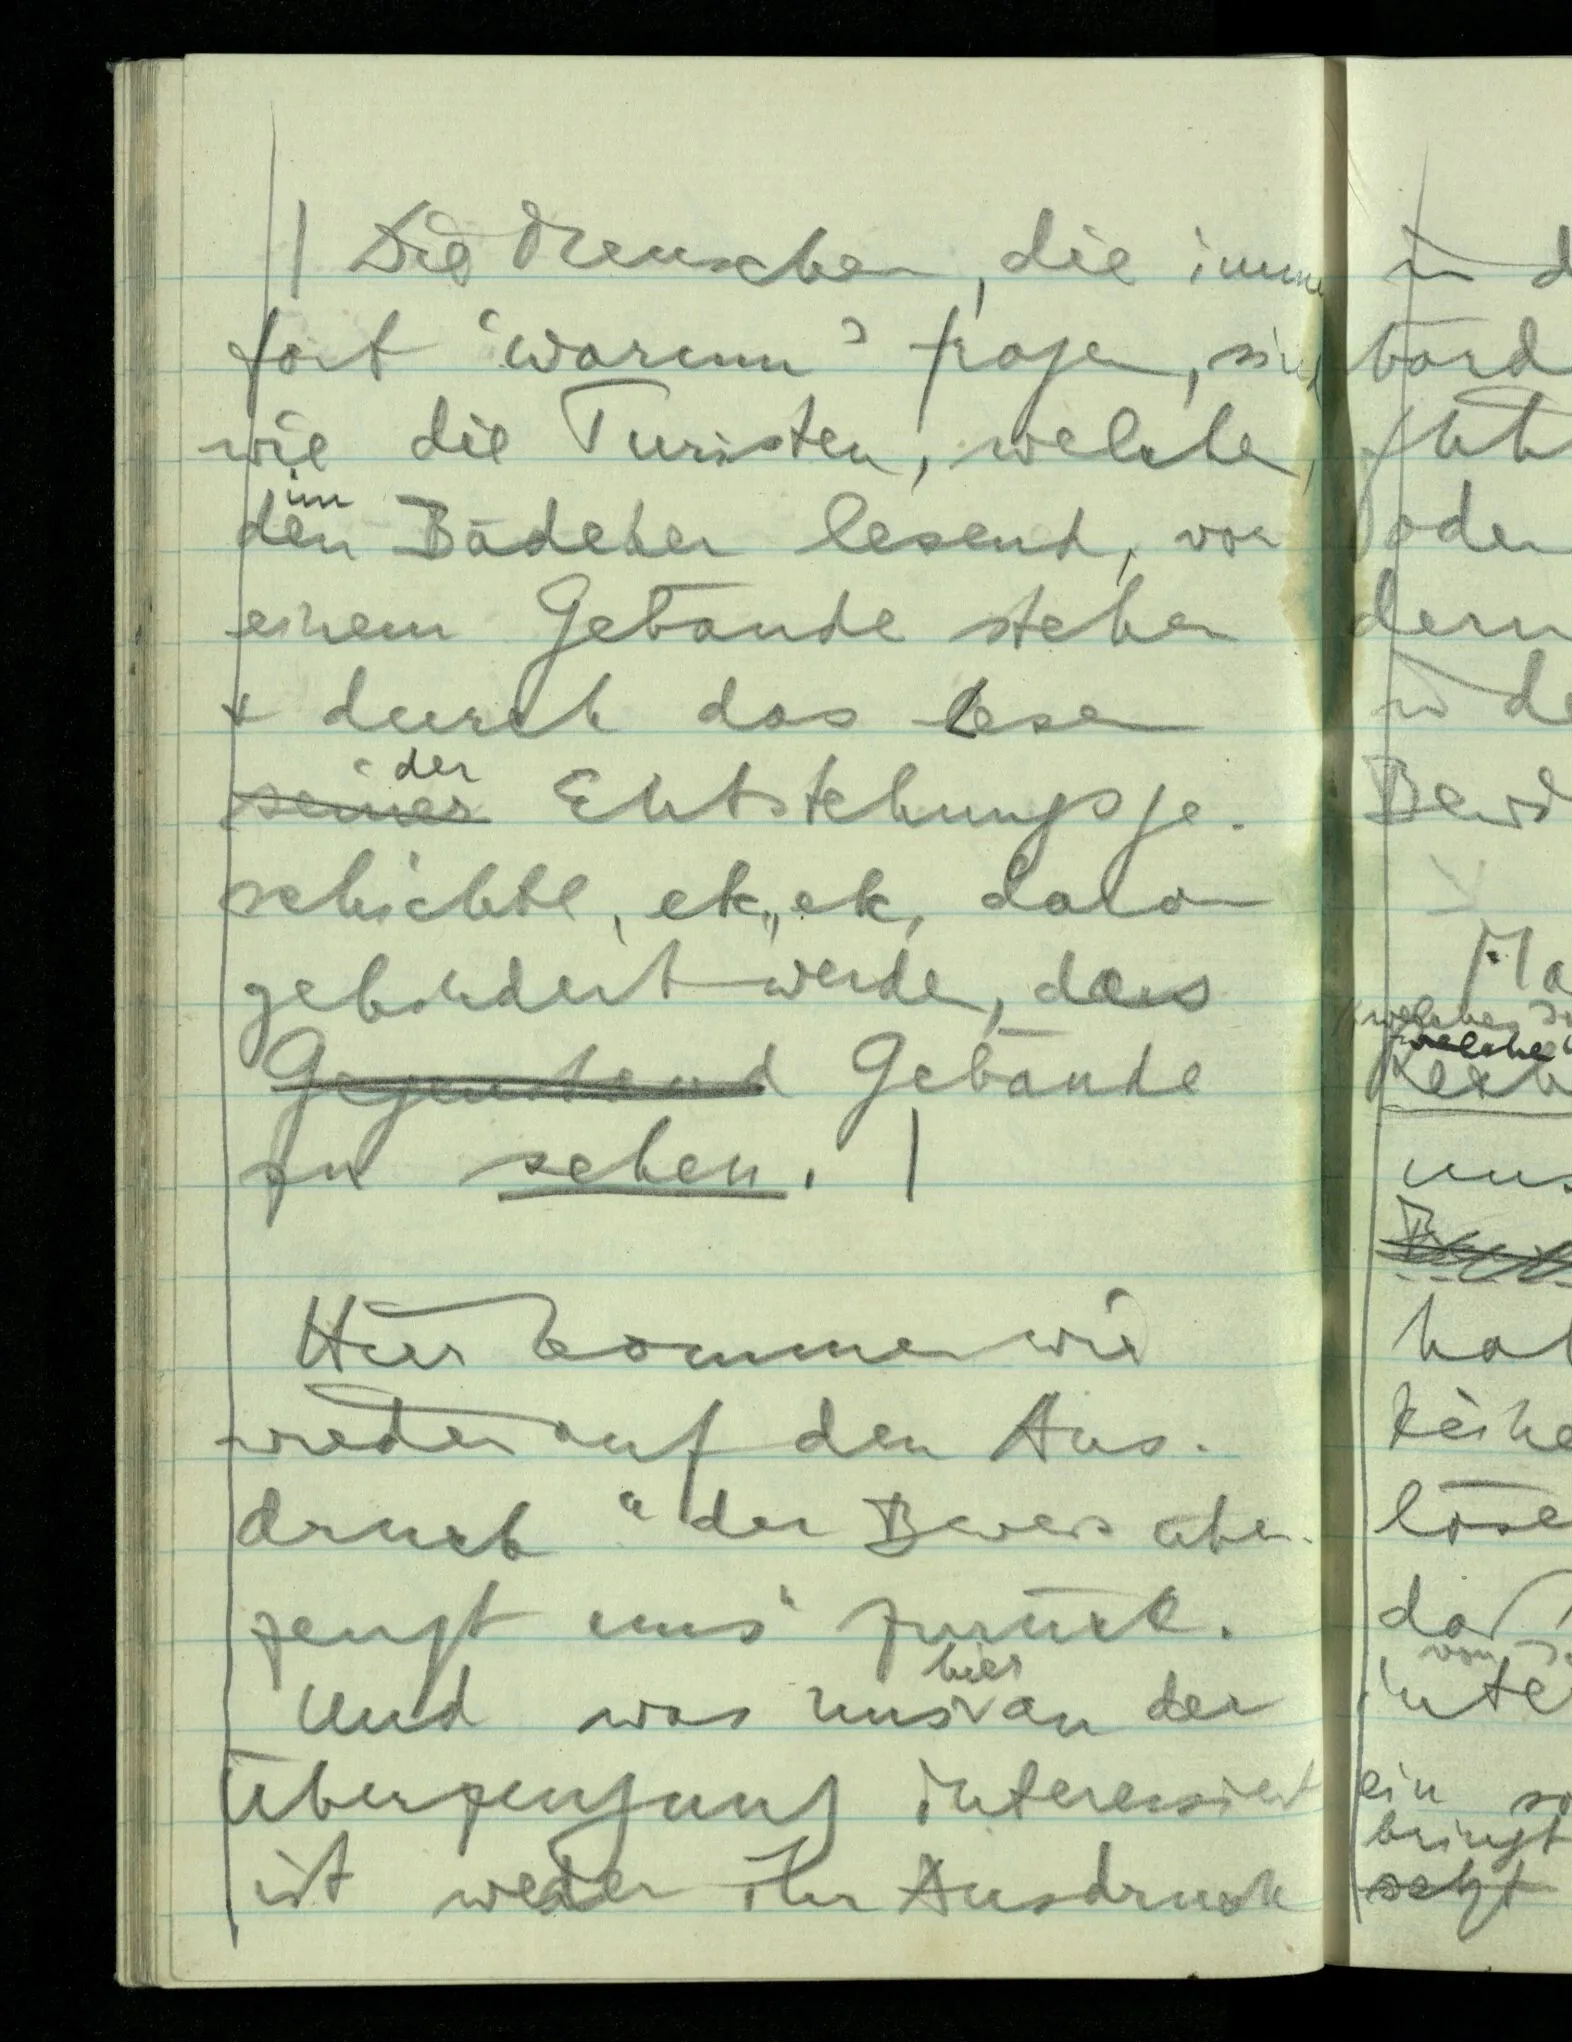 | Die Menschen, die imme
fort ‘warum’ fragen, sind
wie die Turisten, welche,
im
den Bädeker lesend, vor
einem Gebäude stehen
+ durch das Lesen
der
seiner Entstehungsge-
schichte, etc, etc, daran
gehindert werden, das
Gegenstand Gebäude
zu sehen. |
Hier kommen wir
wieder auf den Aus-
druck “der Beweis über-
zeugt uns” zurück.
hier
Und was uns an der
Überzeugung interessiert
ist weder ihr Ausdruck
in d
oder
dern
Ma
welche
welche
uns
löse
da
von
inte
ein so
bringt
setzt